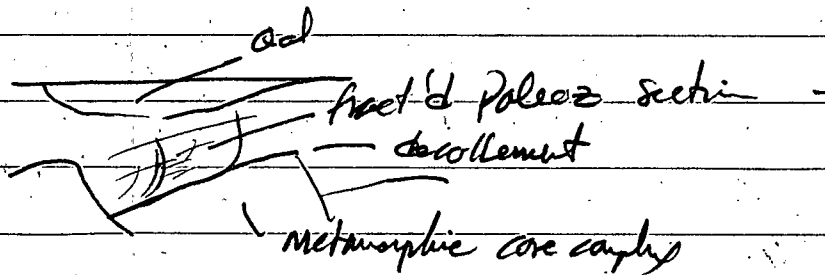 Qal
fract'd Paleoz section -
decollement
metamorphic core complex